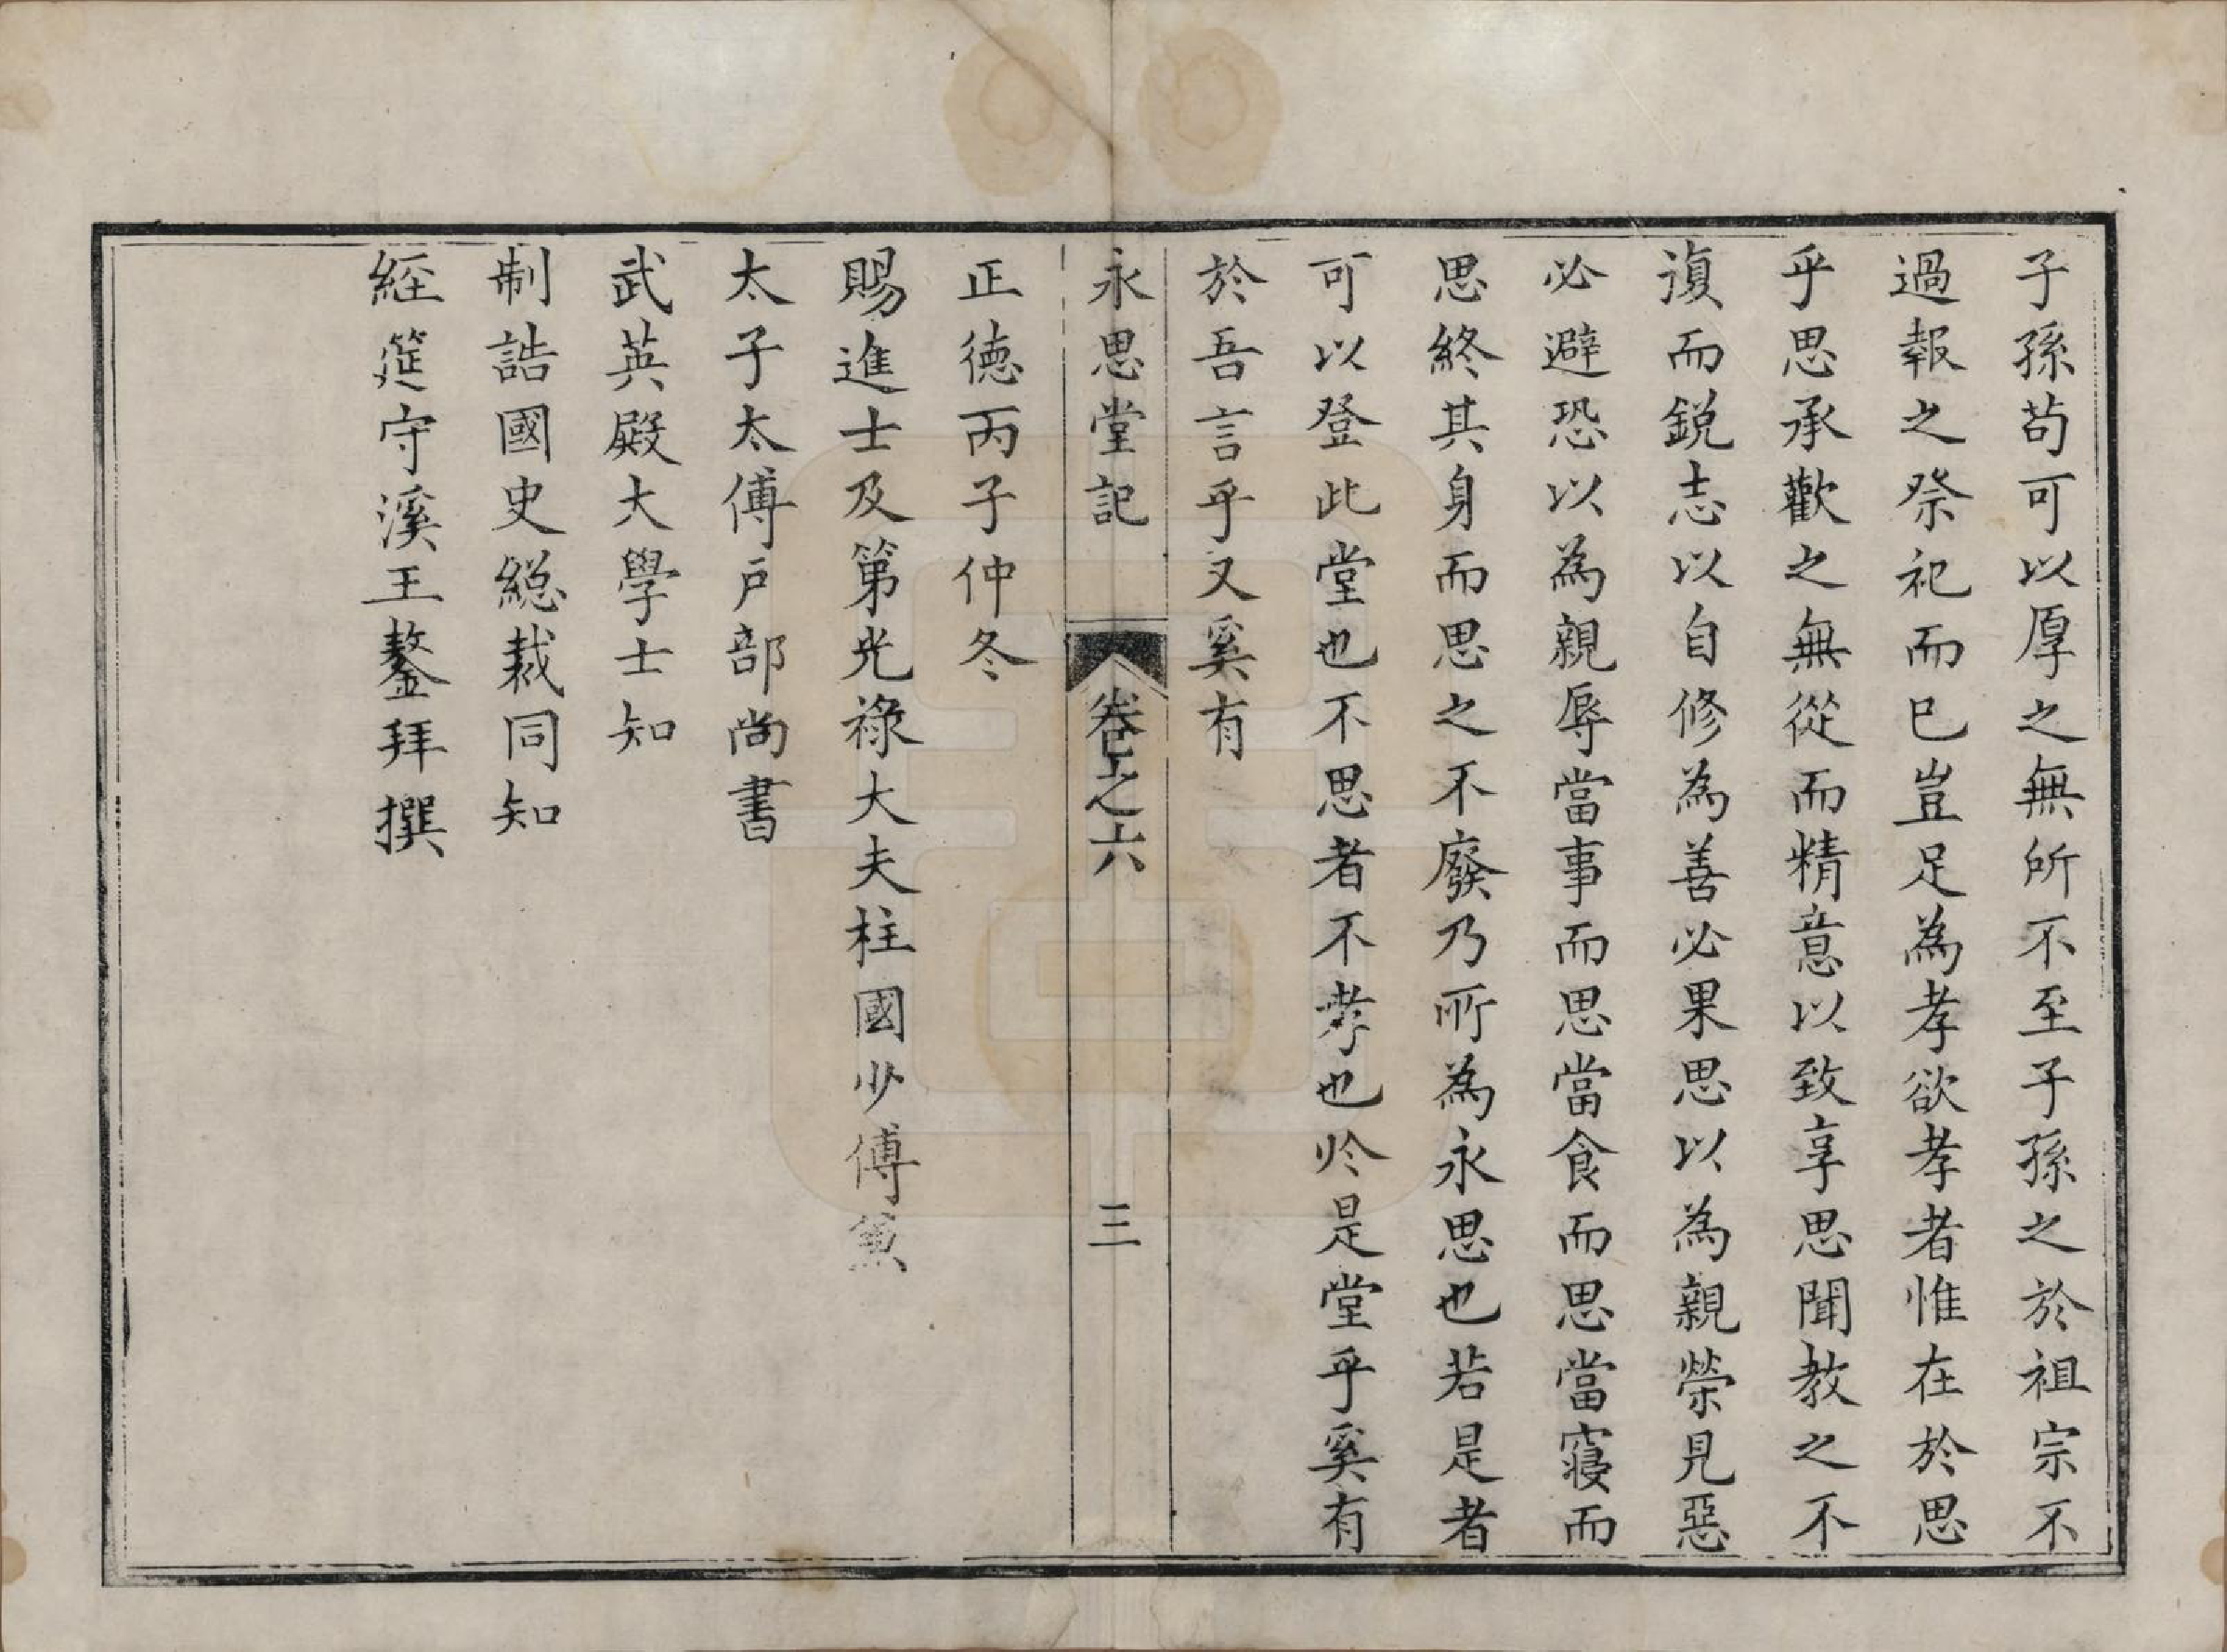 子孫苟可以厚之無所不至子孫之於祖宗不
過報之祭祀而已豈足為孝欲孝者惟在於思
乎思承歡之無從而精意以致享思聞教之不
復而銳志以自修為善必果思以為親榮見惡
必避恐以為親辱當事而思當食而思當寢而
思終其身而思之不廢乃所為永思也若是者
可以登此堂也不思者不孝也於是堂乎奚有
於吾言乎又奚有
永思堂記 卷之六 三
正徳丙子仲冬
賜進士及第光祿大夫柱國少傅兼
太子太傅戶部尚書
武英殿大學士知
制誥國史総裁同知
經筵守溪王鏊拜撰